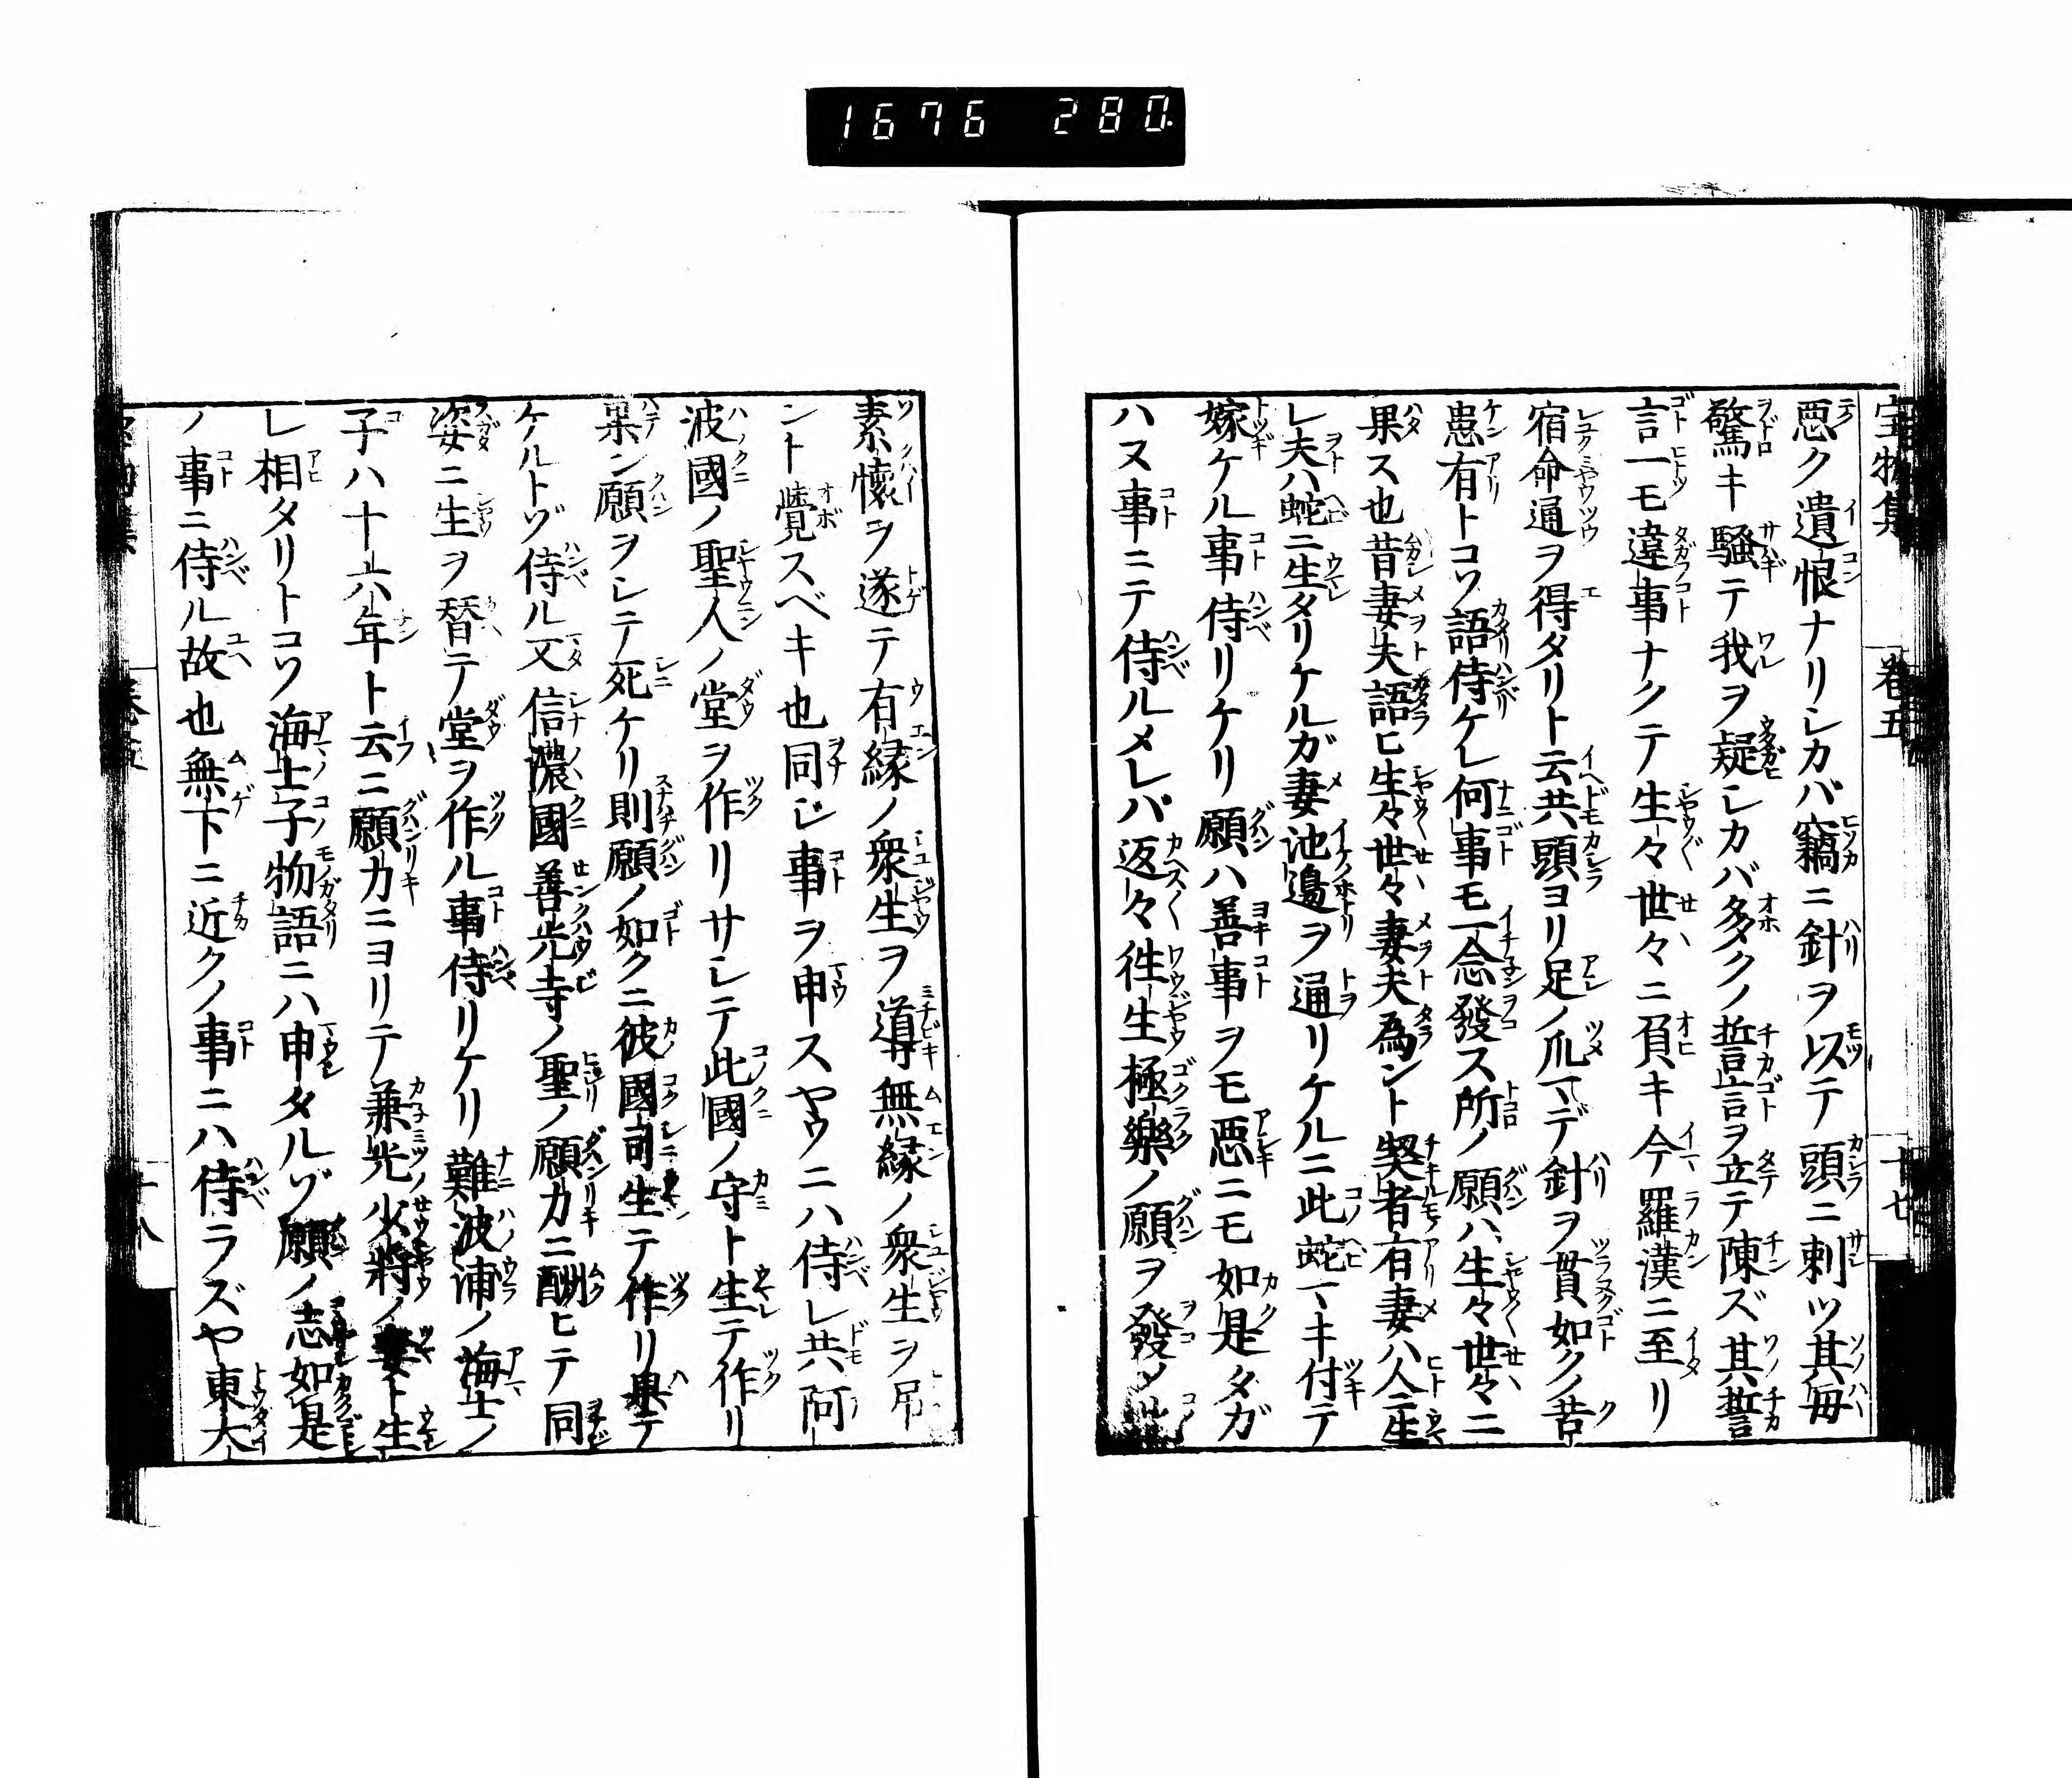 1676 280
宝物集 巻五 十七
悪ク遺恨ナリシカバ竊ニ針ヲ以テ頭ニ刺ツ其毎
驚キ騒テ我ヲ疑シカバ多クノ誓言ヲ立テ陳ズ其誓
言一モ違事ナクテ生々世々ニ負キ今羅漢ニ至リ
宿命通ヲ得タリト云共頭ヨリ足ノ爪マデ針ヲ貫如クノ苦
患有トコソ語侍ケレ何事モ一念發ス所ノ願ハ生々世々ニ
果ス也昔妻夫語ヒ生々世々妻夫為ント契者有妻ハ人ニ生
レ夫ハ蛇ニ生タリケルガ妻池邉ヲ通リケルニ此蛇マキ付テ
嫁ケル事侍リケリ願ハ善事ヲモ悪ニモ如是タガ
ハヌ事ニテ侍ルメレバ返々徃生極樂ノ願ヲ發タル
素懷ヲ遂テ有縁ノ衆生ヲ導無縁ノ衆生ヲ吊
ント覺スベキ也同シ事ヲ申スヤウニハ侍レ共阿
波國ノ聖人ノ堂ヲ作リサシテ此國ノ守ト生テ作リ
果ン願ヲシテ死ケリ則願ノ如クニ彼國司生テ作リ果テ
ケルトゾ侍ル又信濃國善光寺ノ聖ノ願力ニ酬ヒテ同
姿ニ生ヲ替テ堂ヲ作ル事侍リケリ難波浦ノ海士ノ
子ハ十六年ト云ニ願力ニヨリテ兼光少將ノ妻ト生
レ相タリトコソ海士子物語ニハ申タルゾ願ノ志如是
ノ事ニ侍ル故也無下ニ近クノ事ニハ侍ラズヤ東大